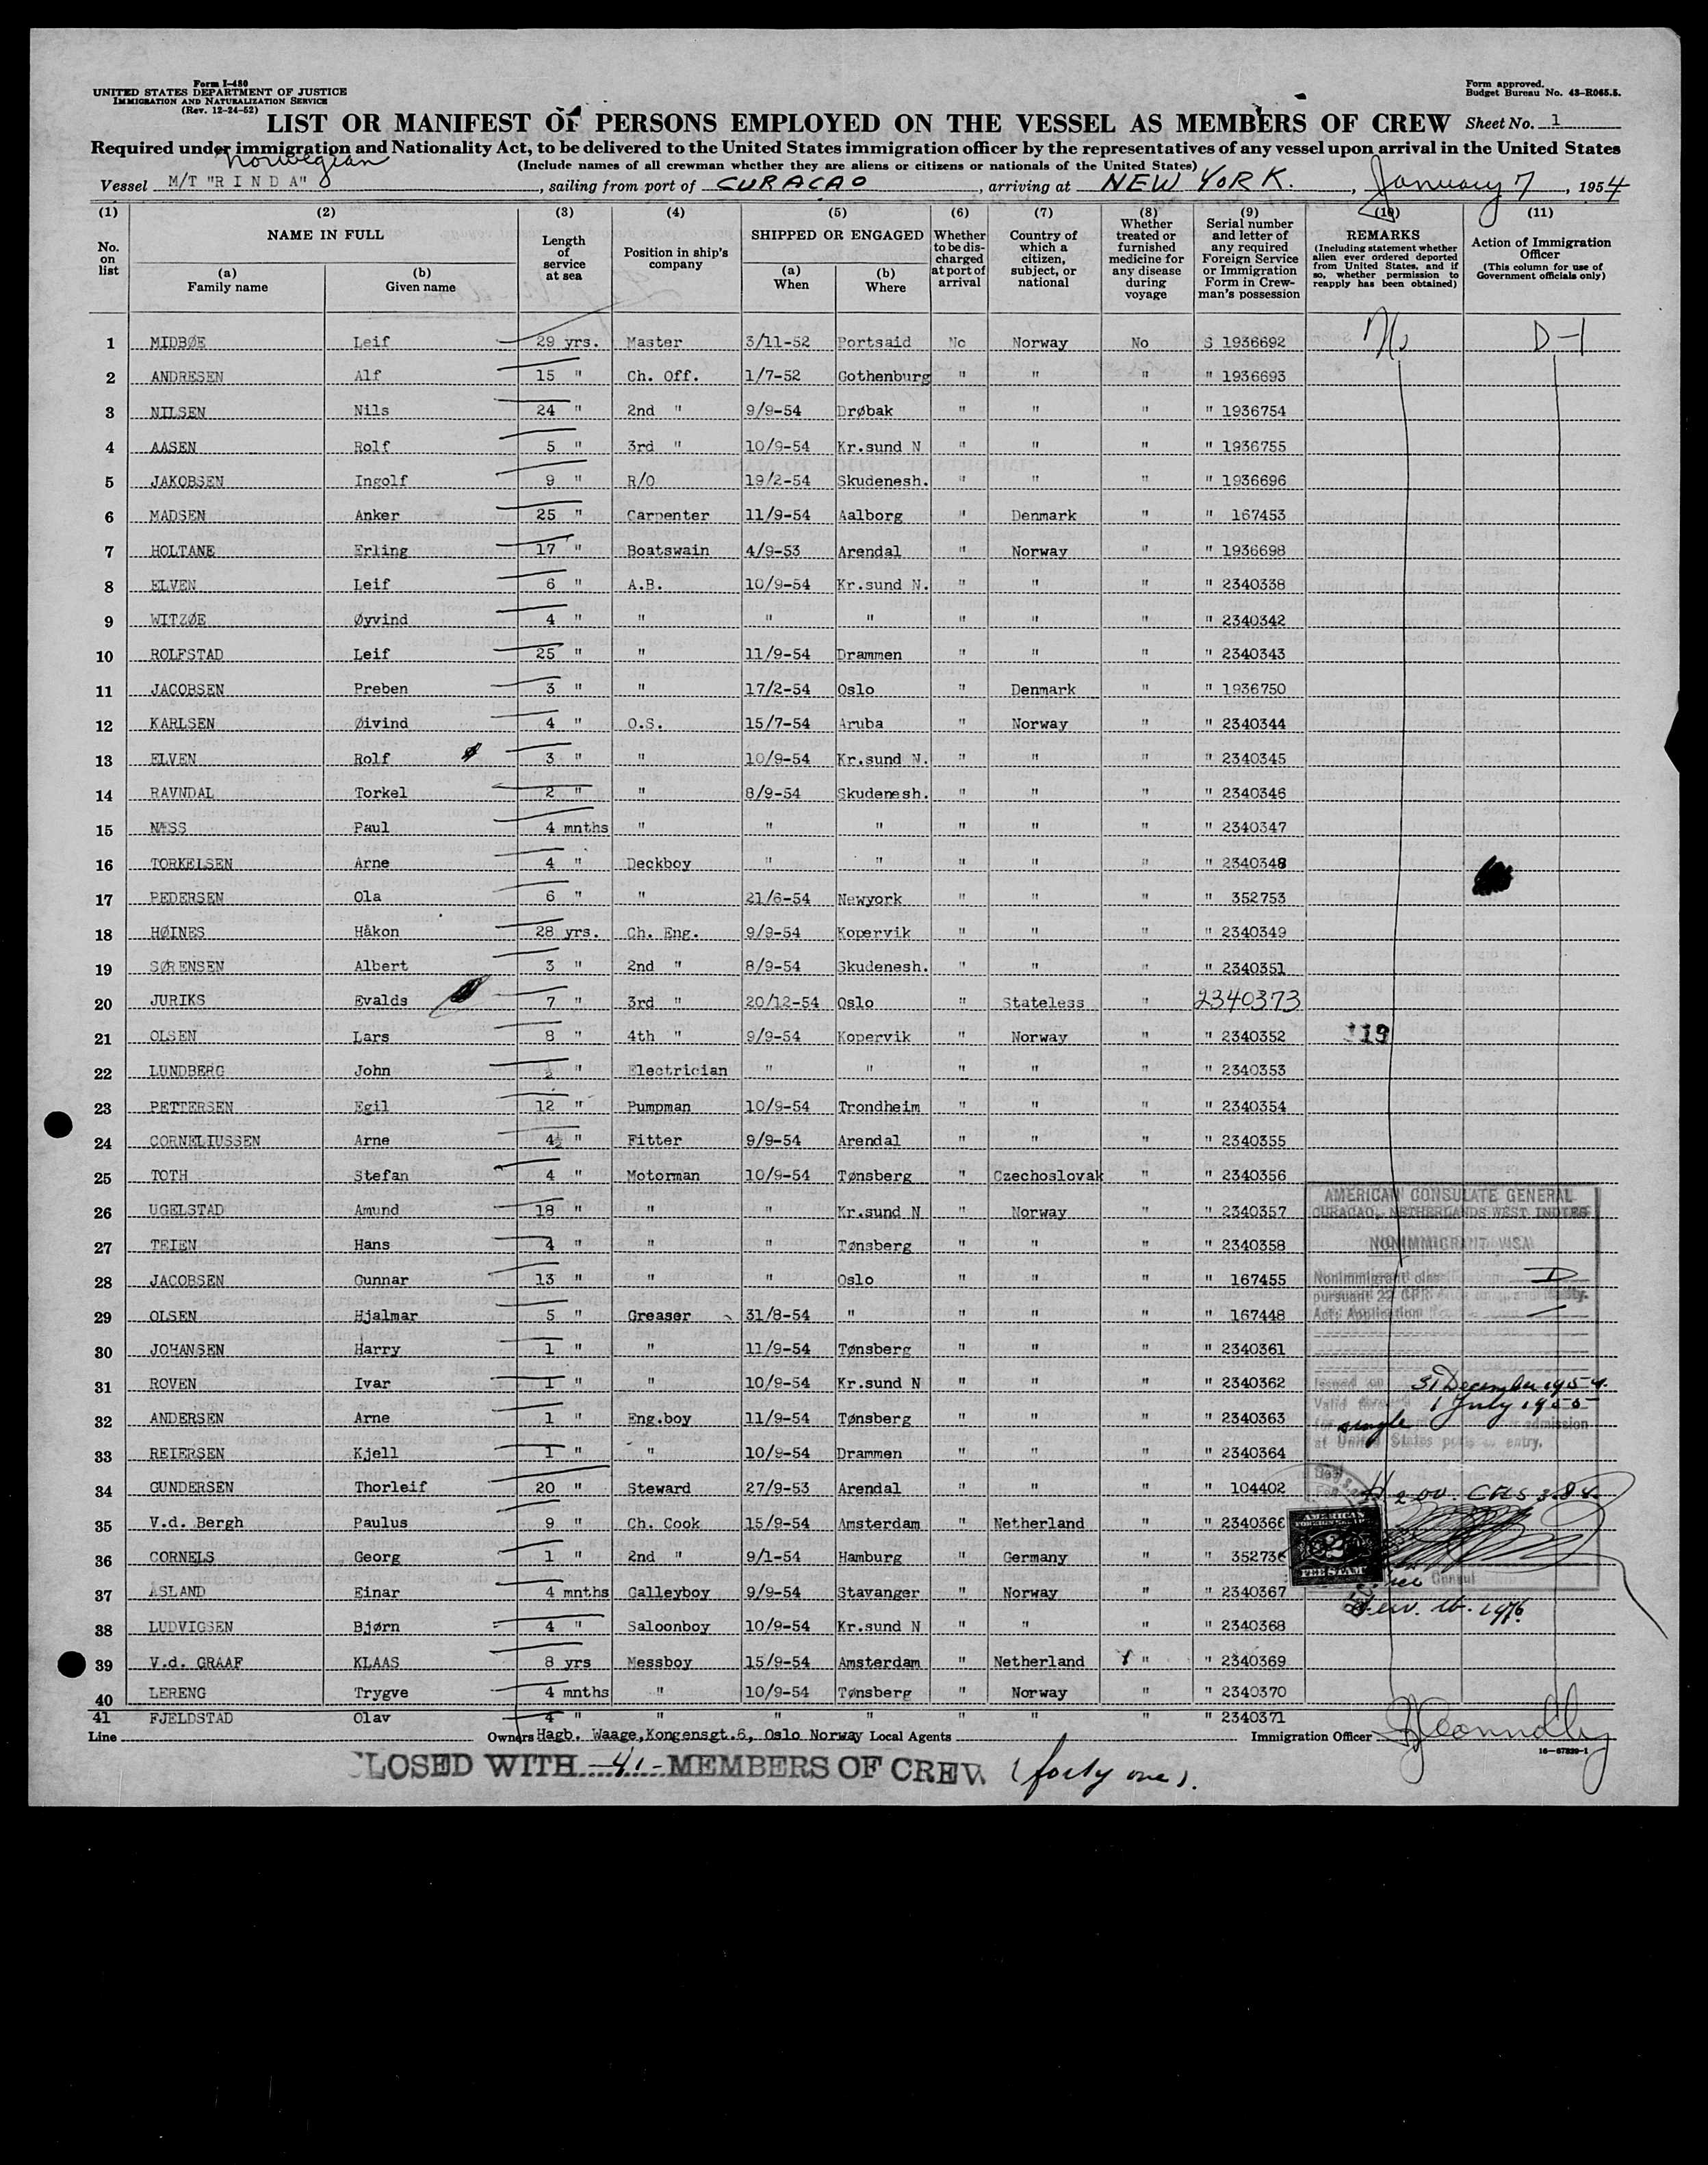 Form I-480
UNITED STATES DEPARTMENT OF JUSTICE
IMMIGRATION AND NATURALIZATION SERVICE
(Rev. 12-24-52)
Form approved.
Budget Bureau No. 43-R065.5.
LIST OR MANIFEST OF PERSONS EMPLOYED ON THE VESSEL AS MEMBERS OF CREW Sheet No. 1
Required under immigration and Nationality Act, to be delivered to the United States immigration officer by the representatives of any vessel upon arrival in the United States
Norwegian
(Include names of all crewman whether they are aliens or citizens or nationals of the United States)
Vessel M/T "R I N D A", sailing from port of CURACAO, arriving at NEW YORK., January 7, 1954
(1) (2) (3) (4) (5) (6) (7) (8) (9) (10) (11)
No. on list
NAME IN FULL
(a) Family name
(b) Given name
Length of service at sea
Position in ship's company
SHIPPED OR ENGAGED
(a) When
(b) Where
Whether to be discharged at port of arrival
Country of which a citizen, subject, or national
Whether treated or furnished medicine for any disease during voyage
Serial number and letter of any required Foreign Service or Immigration Form in Crewman's possession
REMARKS
(Including statement whether alien ever ordered deported from United States, and if so, whether permission to reapply has been obtained)
Action of Immigration Officer
(This column for use of Government officials only)
1 MIDBØE Leif 29 yrs. Master 3/11-52 Portsaid No Norway No S 1936692 No D-1
2 ANDRESEN Alf 15 " Ch. Off. 1/7-52 Gothenburg " " " " 1936693
3 NILSEN Nils 24 " 2nd " 9/9-54 Drøbak " " " " 1936754
4 AASEN Rolf 5 " 3rd " 10/9-54 Kr.sund N " " " " 1936755
5 JAKOBSEN Ingolf 9 " R/O 19/2-54 Skudenesh. " " " " 1936696
6 MADSEN Anker 25 " Carpenter 11/9-54 Aalborg " Denmark " " 167453
7 HOLTANE Erling 17 " Boatswain 4/9-53 Arendal " Norway " " 1936698
8 ELVEN Leif 6 " A.B. 10/9-54 Kr.sund N. " " " " 2340338
9 WITZØE Øyvind 4 " " " " " " " " 2340342
10 ROLFSTAD Leif 25 " " 11/9-54 Drammen " " " " 2340343
11 JACOBSEN Preben 3 " " 17/2-54 Oslo " Denmark " " 1936750
12 KARLSEN Øivind 4 " O.S. 15/7-54 Aruba " Norway " " 2340344
13 ELVEN Rolf 3 " " 10/9-54 Kr.sund N. " " " " 2340345
14 RAVNDAL Torkel 2 " " 8/9-54 Skudenesh. " " " " 2340346
15 NÆSS Paul 4 mnths " " " " " " " 2340347
16 TORKELSEN Arne 4 " Deckboy " " " " " " 2340348
17 PEDERSEN Ola 6 " " 21/6-54 Newyork " " " " 352753
18 HØINES Håkon 28 yrs. Ch. Eng. 9/9-54 Kopervik " " " " 2340349
19 SØRENSEN Albert 3 " 2nd " 8/9-54 Skudenesh. " " " " 2340351
20 JURIKS Evalds 7 " 3rd " 20/12-54 Oslo " Stateless " 2340373
21 OLSEN Lars 8 " 4th " 9/9-54 Kopervik " Norway " " 2340352 119
22 LUNDBERG John ½ " Electrician " " " " " " 2340353
23 PETTERSEN Egil 12 " Pumpman 10/9-54 Trondheim " " " " 2340354
24 CORNELIUSSEN Arne 4½ " Fitter 9/9-54 Arendal " " " " 2340355
25 TOTH Stefan 4 " Motorman 10/9-54 Tønsberg " Czechoslovak " " 2340356
26 UGELSTAD Amund 18 " " " Kr.sund N " Norway " " 2340357
27 TEIEN Hans 4 " " " Tønsberg " " " " 2340358
28 JACOBSEN Gunnar 13 " " " Oslo " " " " 167455
29 OLSEN Hjalmar 5 " Greaser 31/8-54 " " " " " 167448
30 JOHANSEN Harry 1 " " 11/9-54 Tønsberg " " " " 2340361
31 ROVEN Ivar 1 " " 10/9-54 Kr.sund N " " " " 2340362
32 ANDERSEN Arne 1 " Eng.boy 11/9-54 Tønsberg " " " " 2340363
33 REIERSEN Kjell 1 " " 10/9-54 Drammen " " " " 2340364
34 GUNDERSEN Thorleif 20 " Steward 27/9-53 Arendal " " " " 104402
35 V.d. Bergh Paulus 9 " Ch. Cook 15/9-54 Amsterdam " Netherland " " 2340366
36 CORNELS Georg 1 " 2nd " 9/1-54 Hamburg " Germany " " 352736
37 ÅSLAND Einar 4 mnths Galleyboy 9/9-54 Stavanger " Norway " " 2340367
38 LUDVIGSEN Bjørn 4 " Saloonboy 10/9-54 Kr.sund N " " " " 2340368
39 V.d. GRAAF KLAAS 8 yrs Messboy 15/9-54 Amsterdam " Netherland " " 2340369
40 LERENG Trygve 4 mnths " 10/9-54 Tønsberg " Norway " " 2340370
41 FJELDSTAD Olav 4 " " " " " " " " 2340371
AMERICAN CONSULATE GENERAL
CURACAO, NETHERLANDS WEST INDIES
NONIMMIGRANT VISA
Nonimmigrant D
pursuant 22 CFR
Act; Application
Issued on 31 December 1954.
Valid 1 July 1955
for single admission
at United States ports of entry.
AMERICAN
2
FEE STAMP
Consul
Line Owners Hagb. Waage, Kongensgt.6, Oslo Norway Local Agents Immigration Officer
16-67239-1
CLOSED WITH 41 MEMBERS OF CREW (forty one).